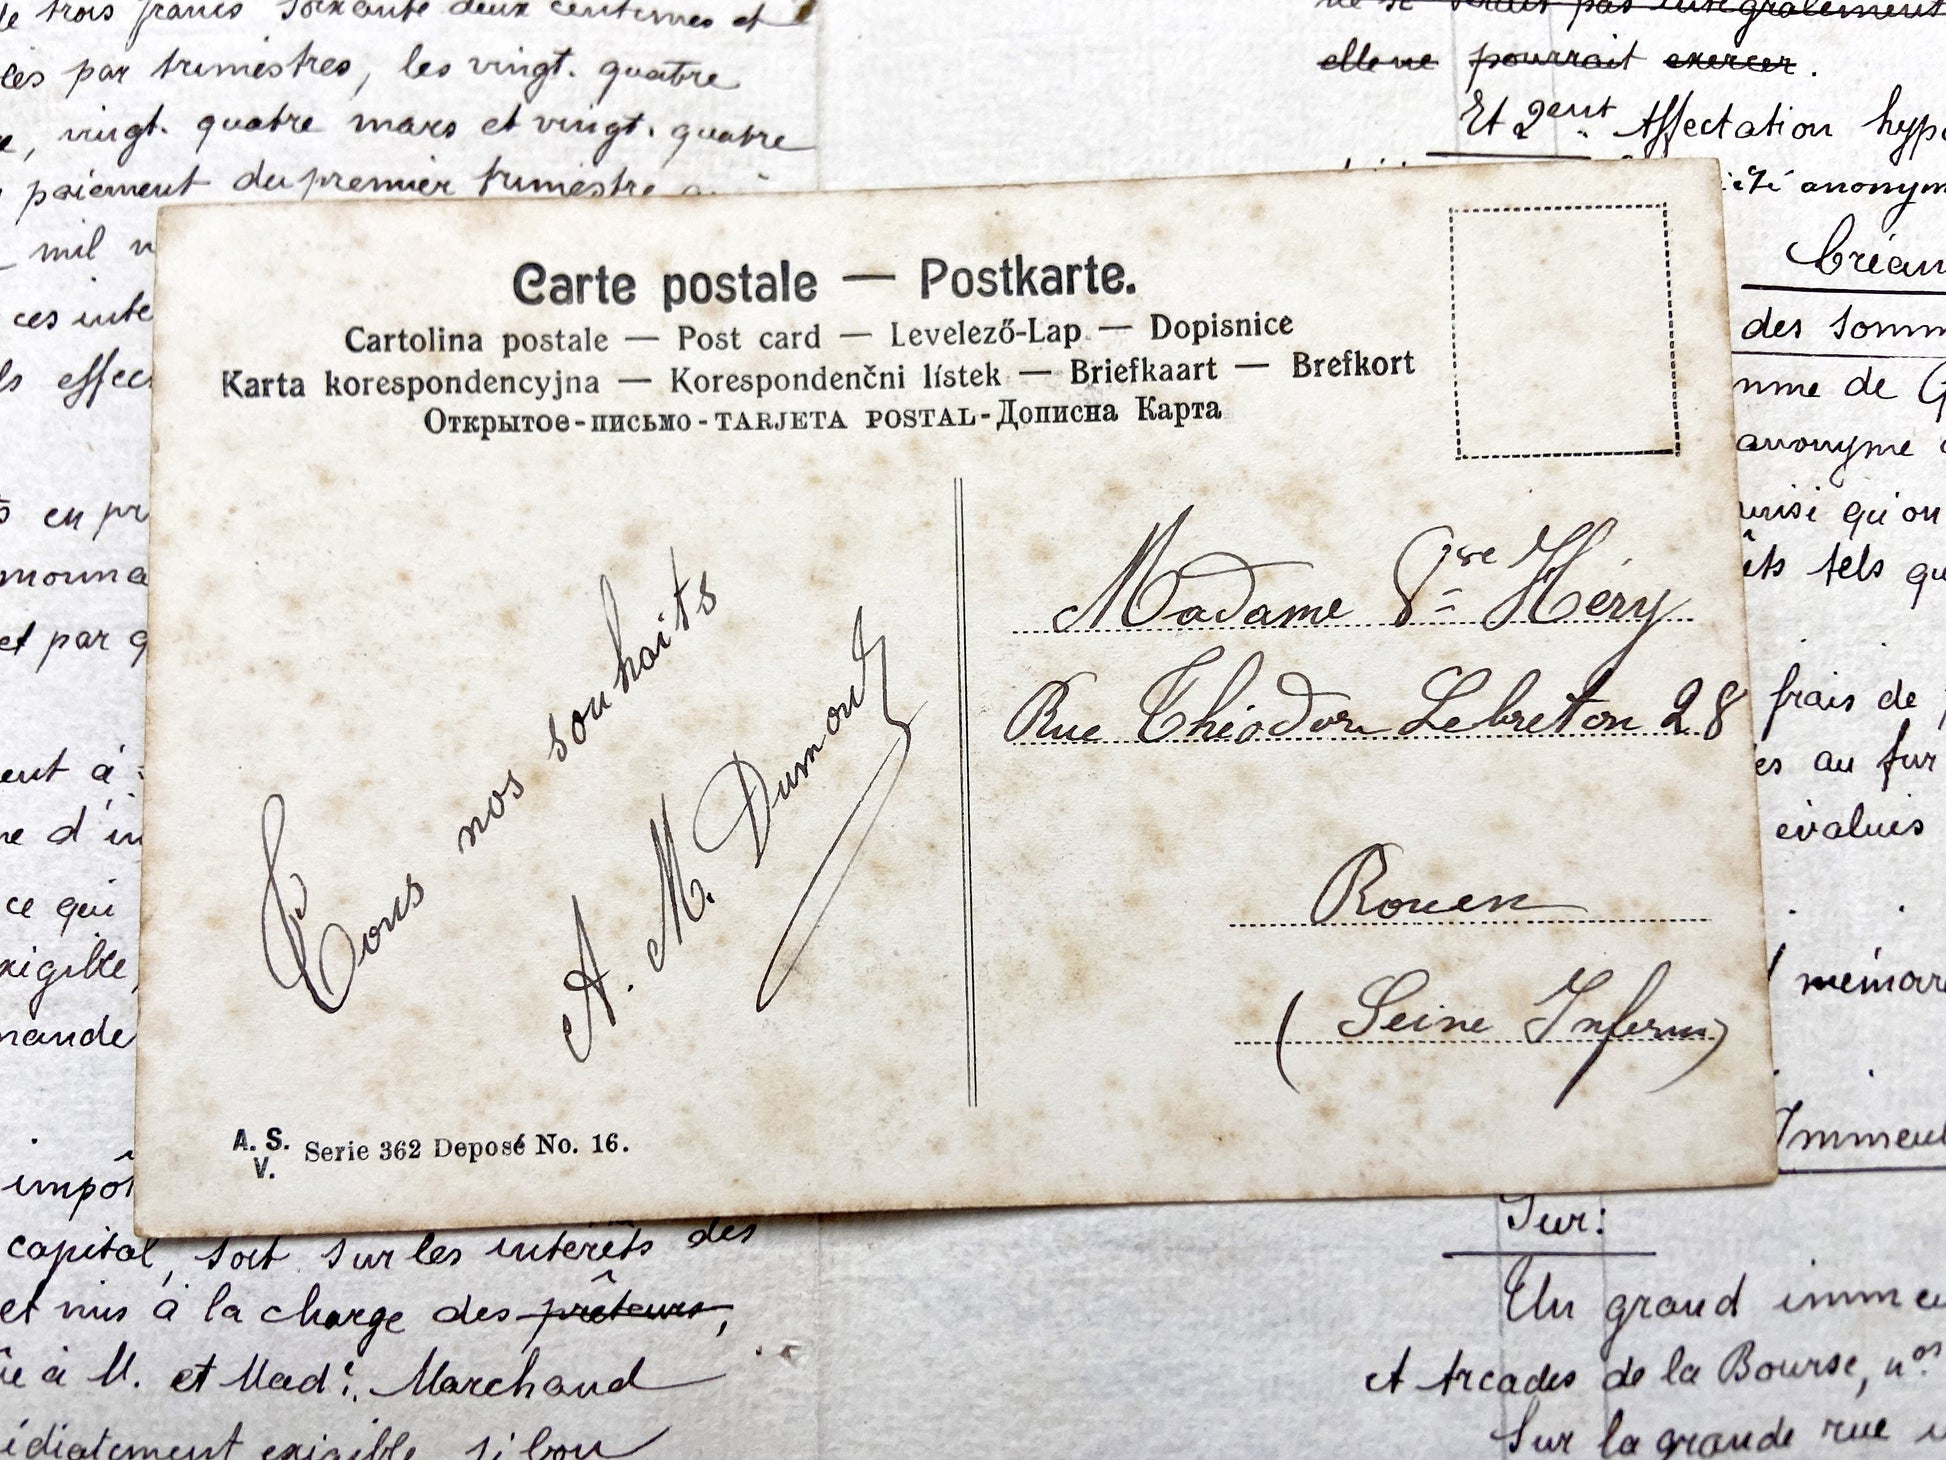 trois francs soixante deux centimes et
par trimestres, les vingt. quatre
vingt. quatre mars et vingt. quatre
paiement du premier trimestre
mil
ces inte
effec
en pr
et par q
ent à
d'in
ce qui
xigible,
mande
impôt
capital, soit sur les intérêts des
et mis à la charge des prêteurs,
à M. et Mad.e Marchand
exigible, si bon
pas intégralement
elle ne pourrait exercer.
Et 2ent Affectation hypo
iété anonym
Créan
des somm
mme de G
anonyme
ainsi qu'on
êts tels qu
frais de
es au fur
évalués
mémoire
Immeub
Sur:
Un grand imme
et Arcades de la Bourse, nos
Sur la grande rue
Carte postale — Postkarte.
Cartolina postale — Post card — Levelező-Lap — Dopisnice
Karta korespondencyjna — Korespondenčni lístek — Briefkaart — Brefkort
Открытое-письмо - TARJETA POSTAL - Дописна Карта
Tous nos souhaits
A. M. Dumont
Madame Vve Héry
Rue Théodore Lebreton 28
Rouen
(Seine Inferre)
A. S. V. Serie 362 Deposé No. 16.